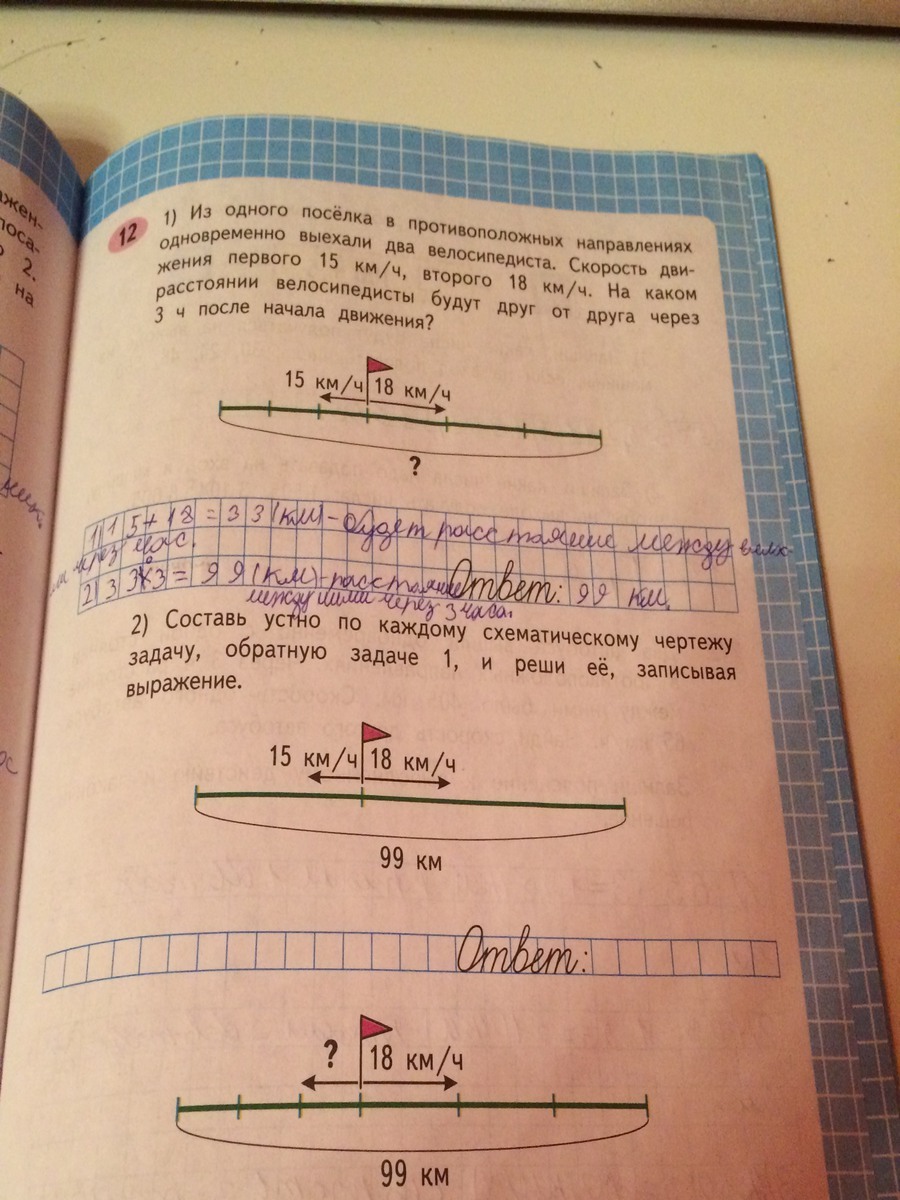 ажен-
поса-
2.
на
12
1) Из одного посёлка в противоположных направлениях
одновременно выехали два велосипедиста. Скорость дви-
жения первого 15 км/ч, второго 18 км/ч. На каком
расстоянии велосипедисты будут друг от друга через
3 ч после начала движения?
15 км/ч 18 км/ч
?
1) 15+18=33(км)-будет расстояние между
через час.
2) 33×3=99(км)-расстояние Ответ: 99 км.
между ними через 3 часа.
2) Составь устно по каждому схематическому чертежу
задачу, обратную задаче 1, и реши её, записывая
выражение.
15 км/ч 18 км/ч
99 км
Ответ:
? 18 км/ч
99 км